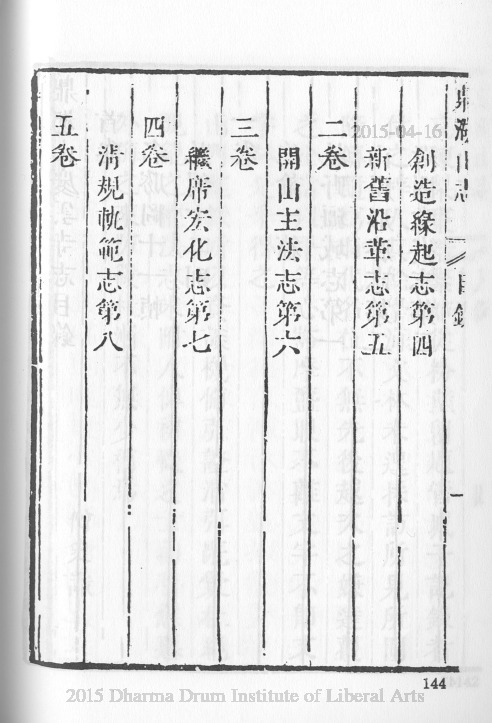 鼎湖山志 目錄 一
創造緣起志第四
新舊沿革志第五
二卷
開山主法志第六
三卷
繼席宏化志第七
四卷
清規軌範志第八
五卷
144
2015-04-16
2015 Dharma Drum Institute of Liberal Arts